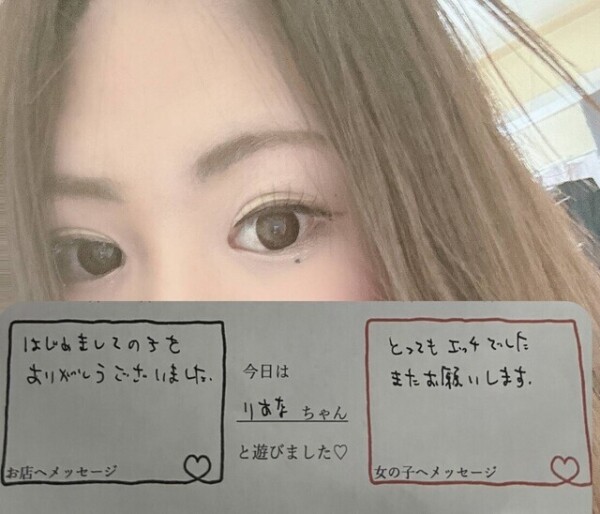 はじめましての子を
ありがとうございました。
お店へメッセージ
今日は
りあな ちゃん
と遊びました♡
とってもエッチでした
またお願いします。
女の子へメッセージ